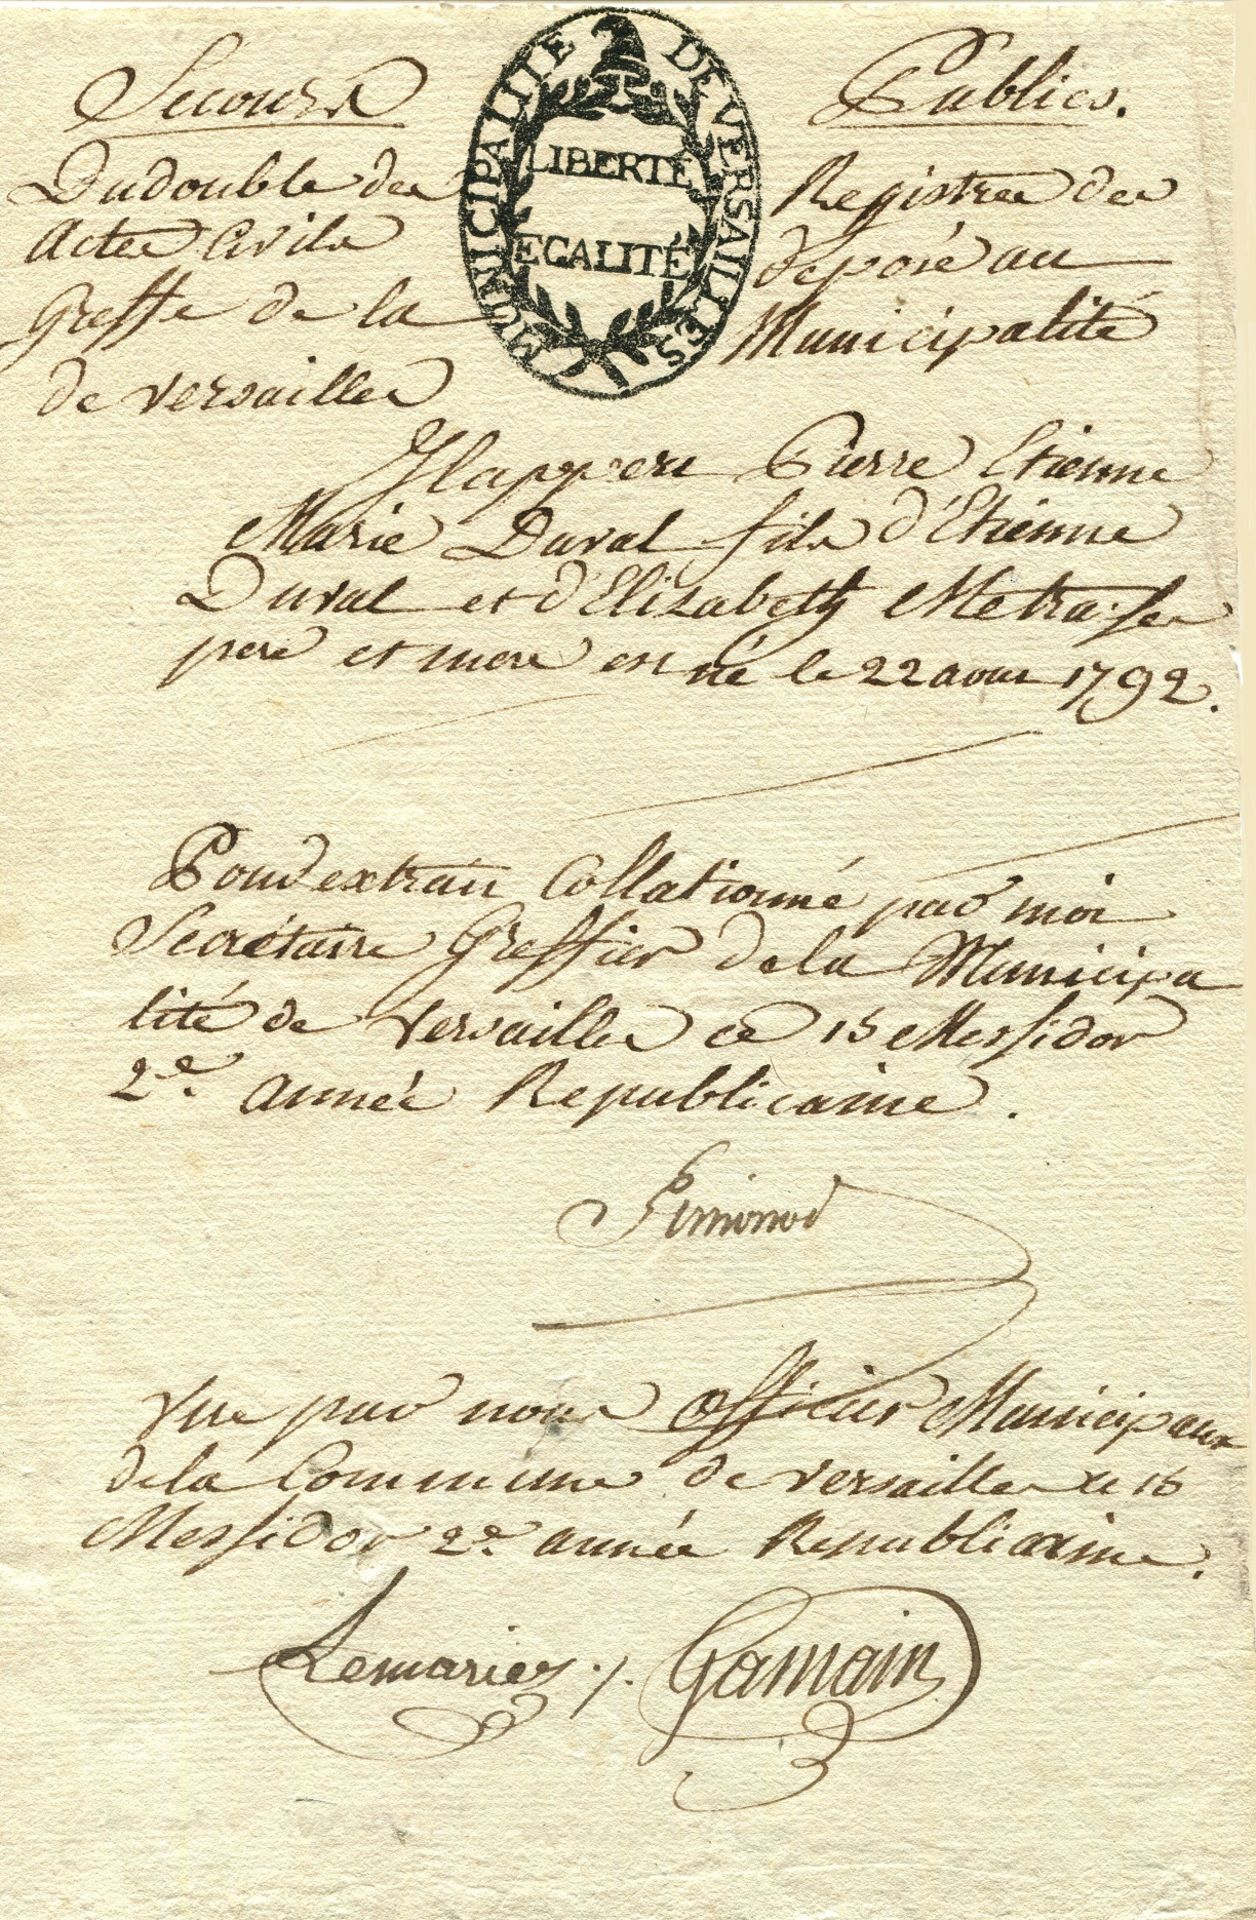 Secours Publics.
MUNICIPALITE DE VERSAILLES
LIBERTÉ
EGALITÉ
Du double des Registres des
Actes Civils déposé au
Greffe de la Municipalité
de Versailles
Il appert Pierre Etienne
Marie Duval fils d'Etienne
Duval et d'Elizabeth ses
pere et mere est né le 22 aout 1792.
Pour extrait Collationné par moi
Secrétaire Greffier de la Municipa
lité de Versailles ce 15 Messidor
2e. année Republicaine.
vu par nous Officiers Municipaux
de la Commune de Versailles le 16
Messidor 2e. année Republicaine.
Gamain